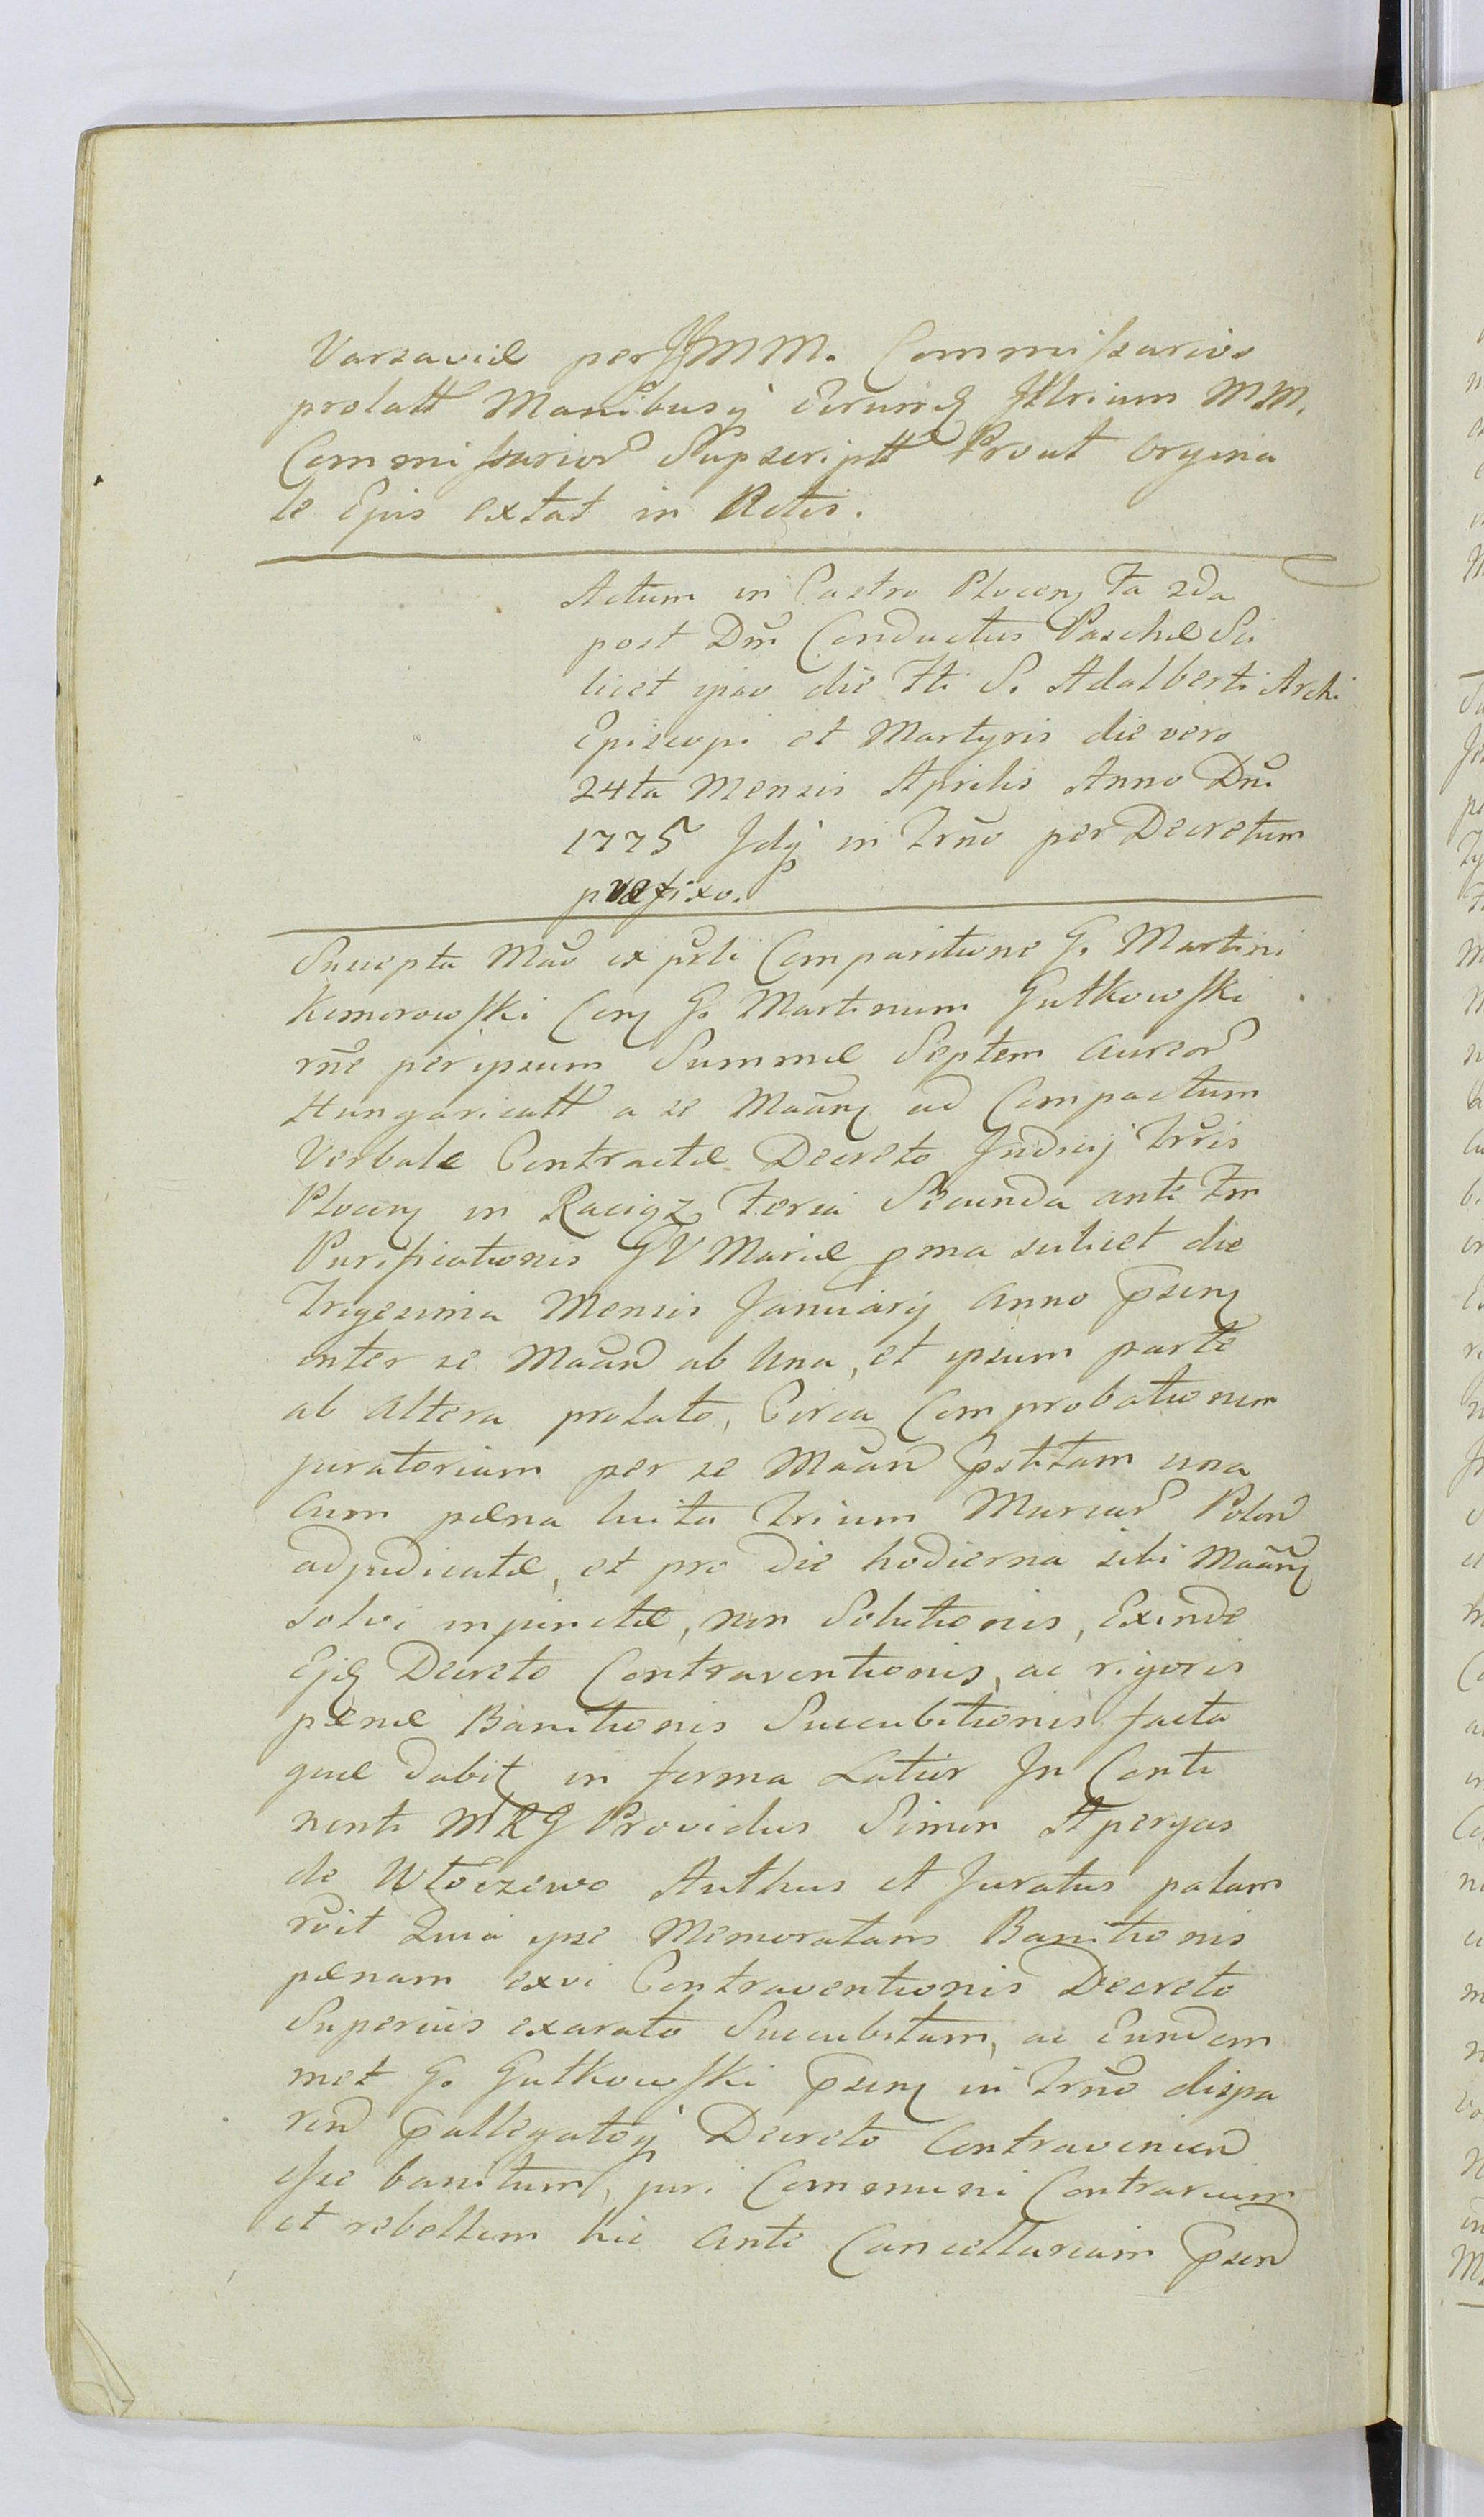 Varsaviæ per JJMM. Commissarios
prolatt Manibusq̃ Eorundę Jllrium MM.
Commissarior Supscriptt Prout orgina
le Ejus extat in Actis.
Actum in Castro Plocenę Fa 2da
post Dm̃ Conductus Paschæ Sci
licet ipso die Fti S. Adalberti Archi
Episcopi et Martyris die vero
24ta Mensis Aprilis Anno Dni
1775 Jdq̃ in Trño per Decretum
præfixo.
Suscepta Mão ex pr̃li Comparitione G. Martini
Komorowski Conę G. Martinum Gutkowski
rñe per ipsum Summæ Septem aureor
Hungaricatt a se Mãanę ad Compactum
Verbale Contractæ Decreto Judicij Trr̃is
Plocenę in Raciąz Feria Secunda ante Fm
Purificationis BV Mariæ pma scilicet die
Trigesima Mensis Januarij anno p̄senę
inter se Mãan ab Una, et ipsum parte
ab altera prolato, Circa Comprobationem
juratoriam per se Mãan p̄stitam una
cum pæna luita trium Marcar Polon
adjudicatæ, et pro die hodierna sibi Mãanę
solvi injunctæ, non Solutionis, Exinde
Ejdę Decreto Contraventionis, ac rigoris
pænæ Banitionis Succubitionis facta
quæ dabit in forma Latior Jn Conti
nenti MRG Providus Simon Aspergas
de Włoczewo Authus et Juratus palam
rõit Quia ipse Memoratam Banitionis
pænam exvi Contraventionis Decreto
Superius exarato Succubitam, ac Eundem
met G. Gutkowski p̄senę in Trño dispa
ren p̄allegatoq̃ Decreto Contravenien
esse banitum, juri Communi Contrarium
et rebellem hic ante Cancellariam p̄sen